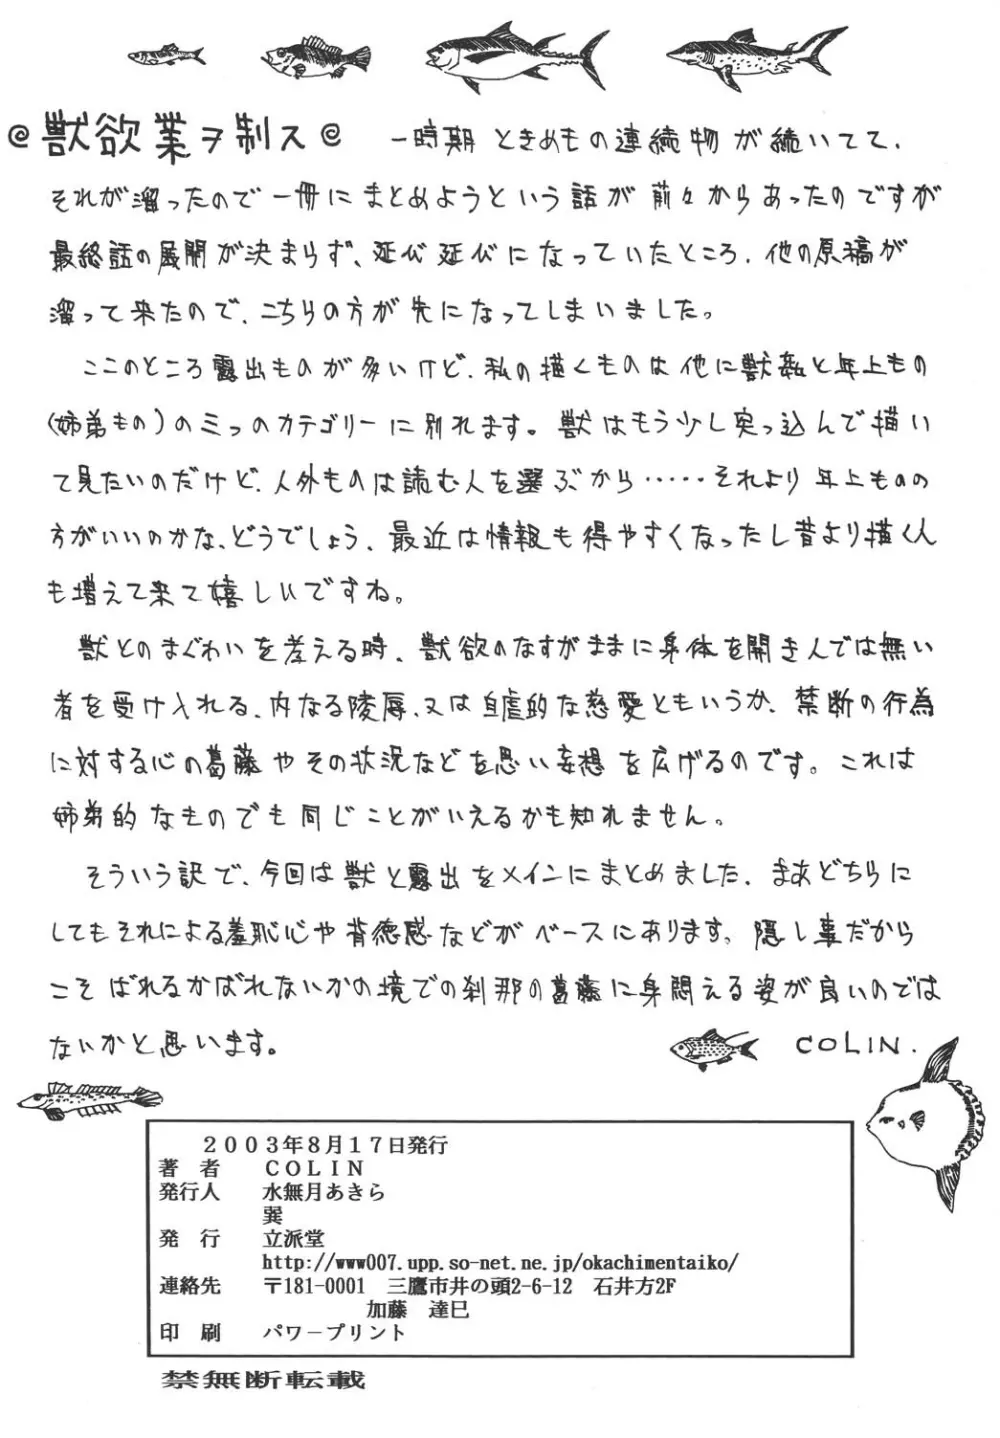 @獣欲業ヲ制ス@　一時期 ときめもの連続物が続いてて、
それが溜ったので一冊にまとめようという話が前々からあったのですが
最終話の展開が決まらず、延び延びになっていたところ、他の原稿が
溜って来たので、こちらの方が先になってしまいました。
ここのところ露出ものが多いけど、私の描くものは他に獣姦と年上もの
(姉弟もの)の三つのカテゴリーに別れます。獣はもう少し突っ込んで描い
て見たいのだけど、人外ものは読む人を選ぶから……それより年上ものの
方がいいのかな、どうでしょう、最近は情報も得やすくなったし昔より描く人
も増えて来て嬉しいですね。
獣とのまぐわいを考える時、獣欲のなすがままに身体を開き人では無い
者を受け入れる、内なる陵辱、又は自虐的な慈愛ともいうか、禁断の行為
に対する心の葛藤やその状況などを思い妄想を広げるのです。これは
姉弟的なものでも同じことがいえるかも知れません。
そういう訳で、今回は獣と露出をメインにまとめました、まあどちらに
してもそれによる羞恥心や背徳感などがベースにあります。隠し事だから
こそばれるかばれないかの境での刹那の葛藤に身悶える姿が良いのでは
ないかと思います。
COLIN.
２００３年８月１７日発行
著　者　ＣＯＬＩＮ
発行人　水無月あきら
巽
発　行　立派堂
http://www007.upp.so-net.ne.jp/okachimentaiko/
連絡先　〒181-0001　三鷹市井の頭2-6-12　石井方2F
加藤　達巳
印　刷　パワープリント
禁無断転載